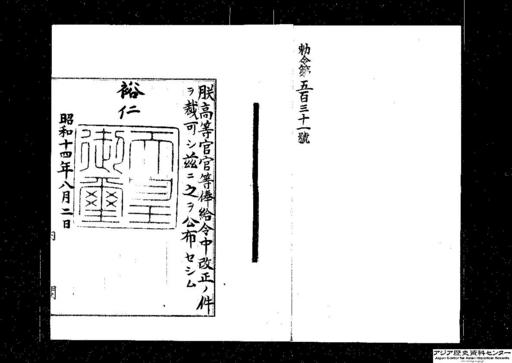 勅令第五百三十一號
朕高等官官等俸給令中改正ノ件
ヲ裁可シ茲ニ之ヲ公布セシム
裕仁
天皇
御璽
昭和十四年八月二日
内閣
アジア歴史資料センター
Japan Center for Asian Historical Records